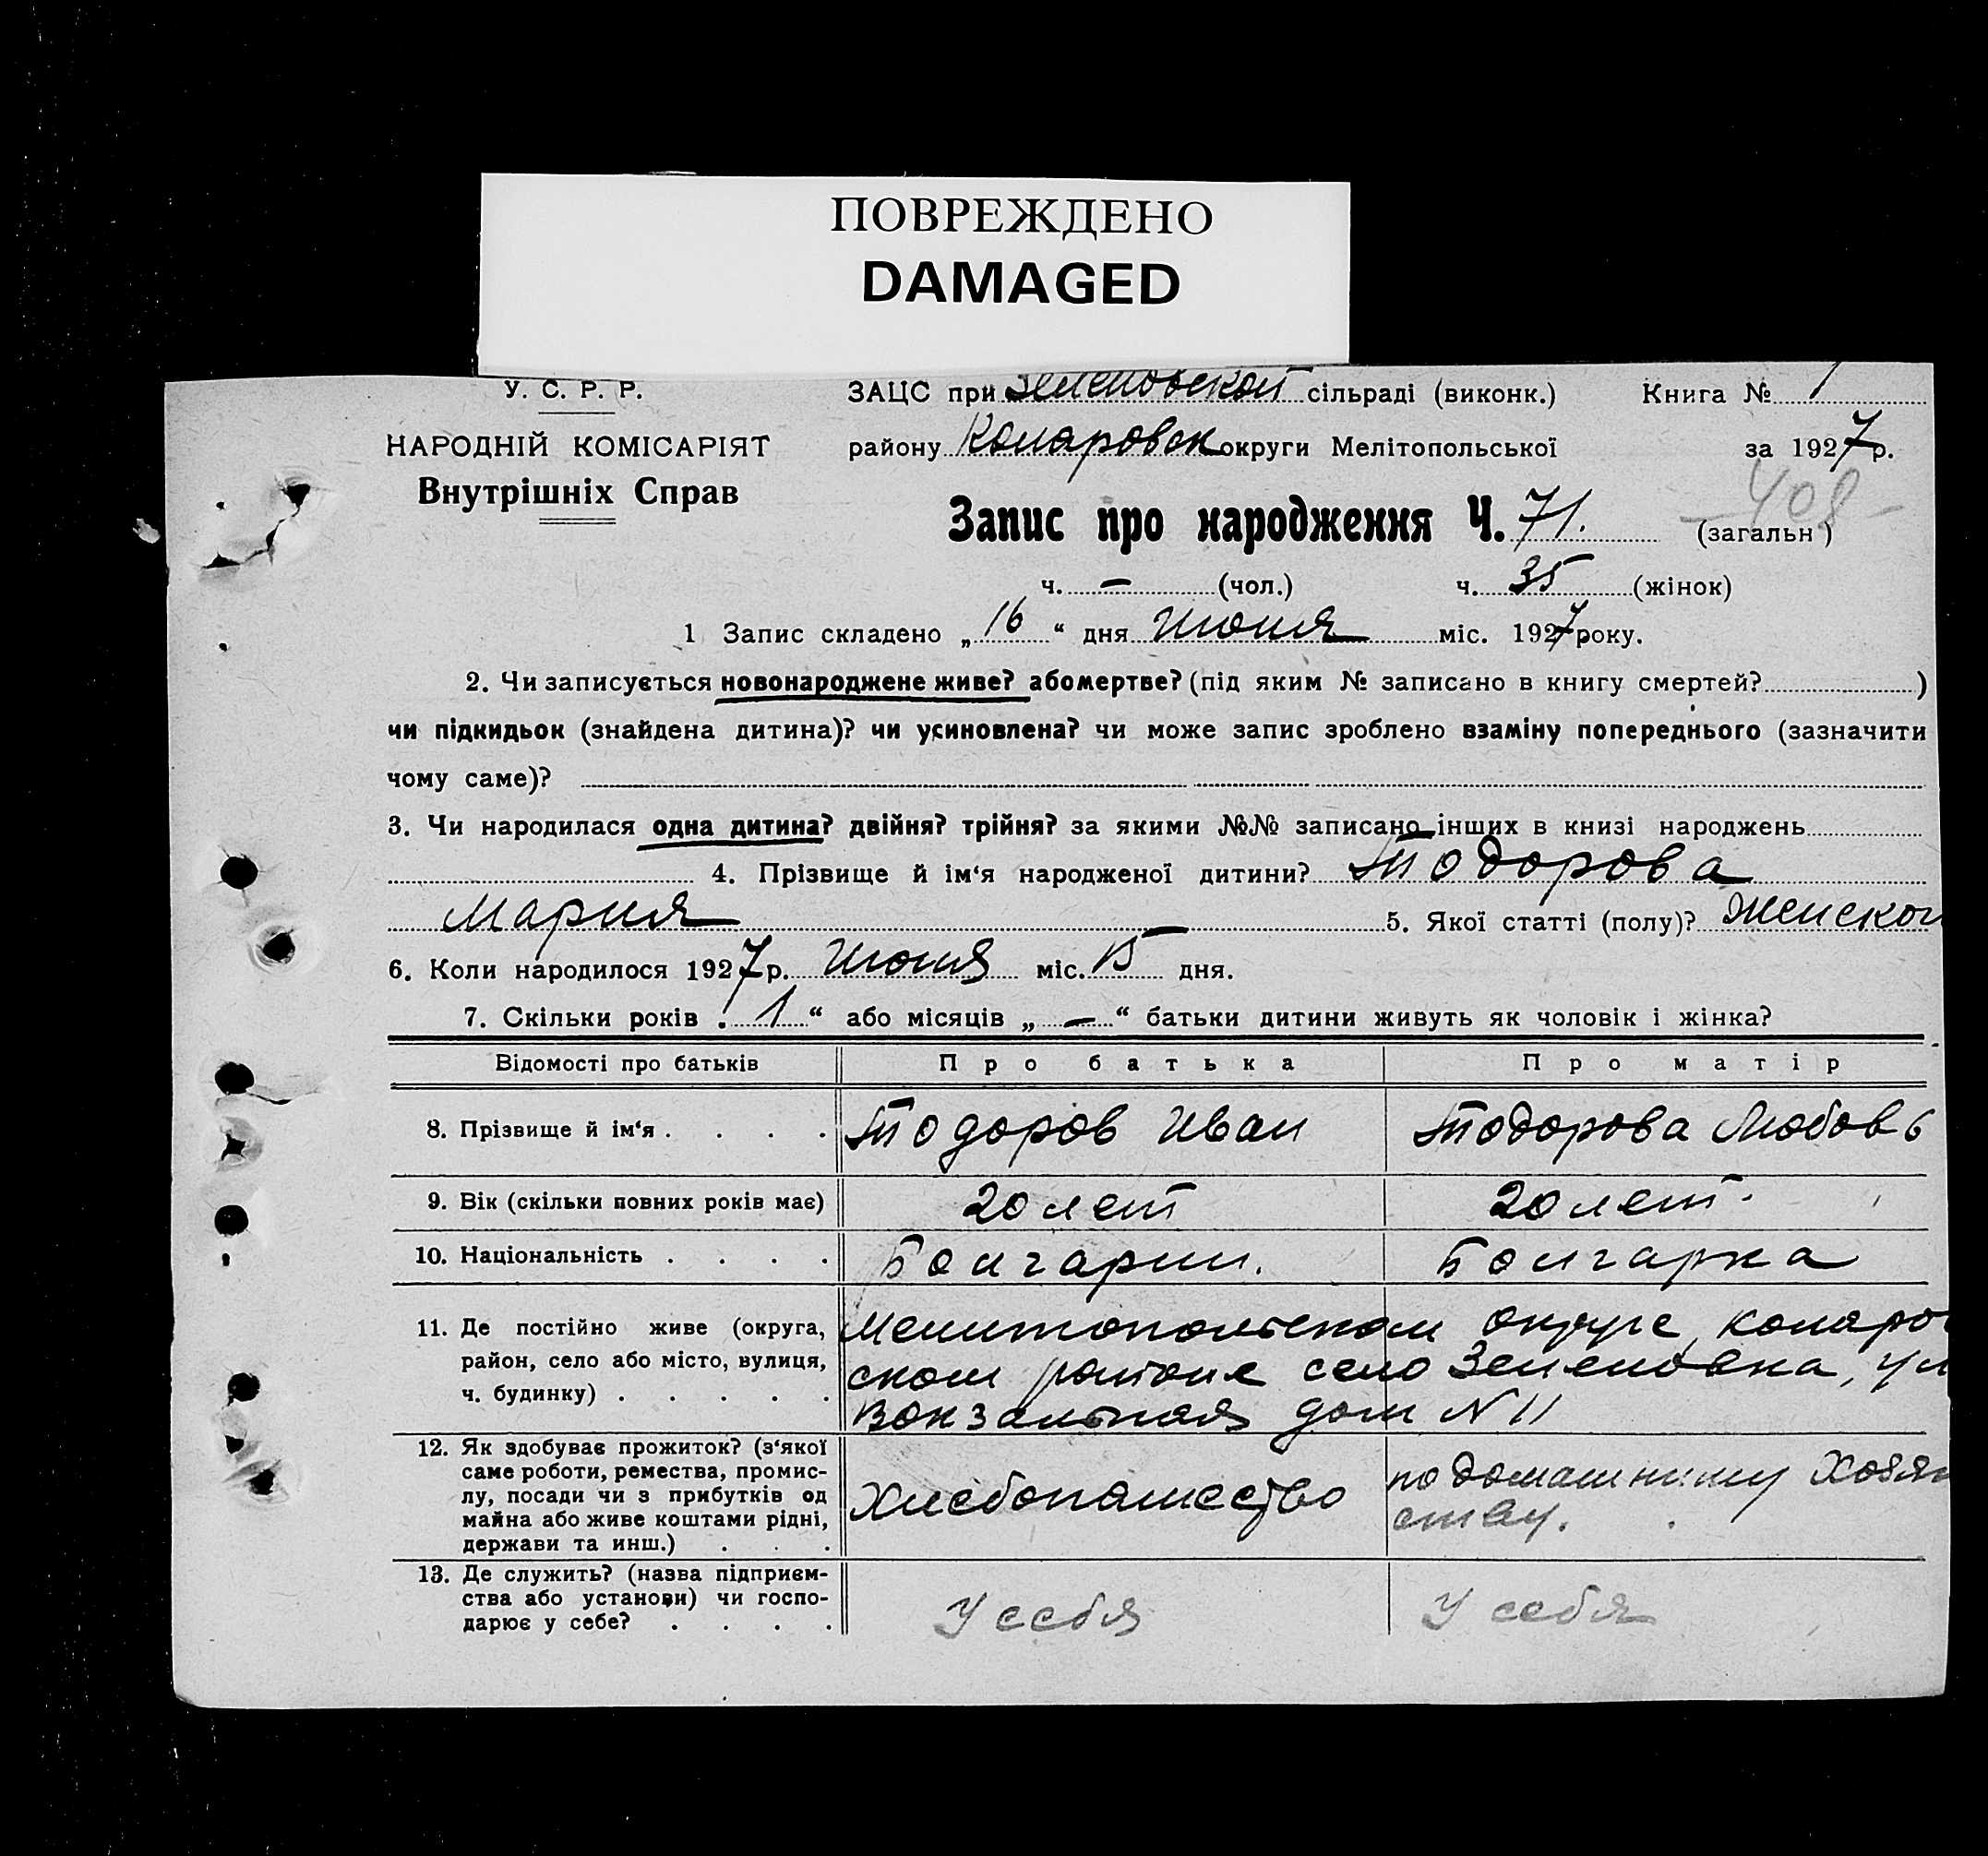 ПОВРЕЖДЕНО
DAMAGED
У. С. Р. Р.
НАРОДНІЙ КОМІСАРІЯТ
Внутрішніх Справ
ЗАЦС при Зеленовской сільраді (виконк.) Книга № 1
району Комаровск округи Мелітопольської за 1927 р.
408
Запис про народження Ч. 71. (загальн)
ч. — (чол.) ч. 35 (жінок)
1 Запис складено „16“ дня Июня міс. 1927 року.
2. Чи записується новонароджене живе? або мертве? (під яким № записано в книгу смертей? )
чи підкидьок (знайдена дитина)? чи усиновлена? чи може запис зроблено взаміну попереднього (зазначити
чому саме)?
3. Чи народилася одна дитина? двійня? трійня? за якими №№ записано інших в книзі народжень
4. Прізвище й ім‘я народженої дитини? Тодорова
Мария 5. Якої статті (полу)? Женског
6. Коли народилося 1927 р. Июня міс. 15 дня.
7. Скільки років „1“ або місяців „—“ батьки дитини живуть як чоловік і жінка?
Відомості про батьків Про батька Про матір
8. Прізвище й ім‘я . . . . Тодоров Иван Тодорова Любовь
9. Вік (скільки повних років має) 20 лет 20 лет.
10. Національність . . . . Болгарин. Болгарка
11. Де постійно живе (округа,
район, село або місто, вулиця,
ч. будинку) . . . . .
Мелитопольском округе, комаров
ском районе село Зеленовка, ул
Вокзальная дом N 11
12. Як здобуває прожиток? (з‘якої
саме роботи, ремества, промис-
лу, посади чи з прибутків од
майна або живе коштами рідні,
держави та инш.) . . .
Хлебопашество
по домашниму Хозяй
ству.
13. Де служить? (назва підприєм-
ства або установи) чи госпо-
дарює у себе? . . . .
У себя У себя